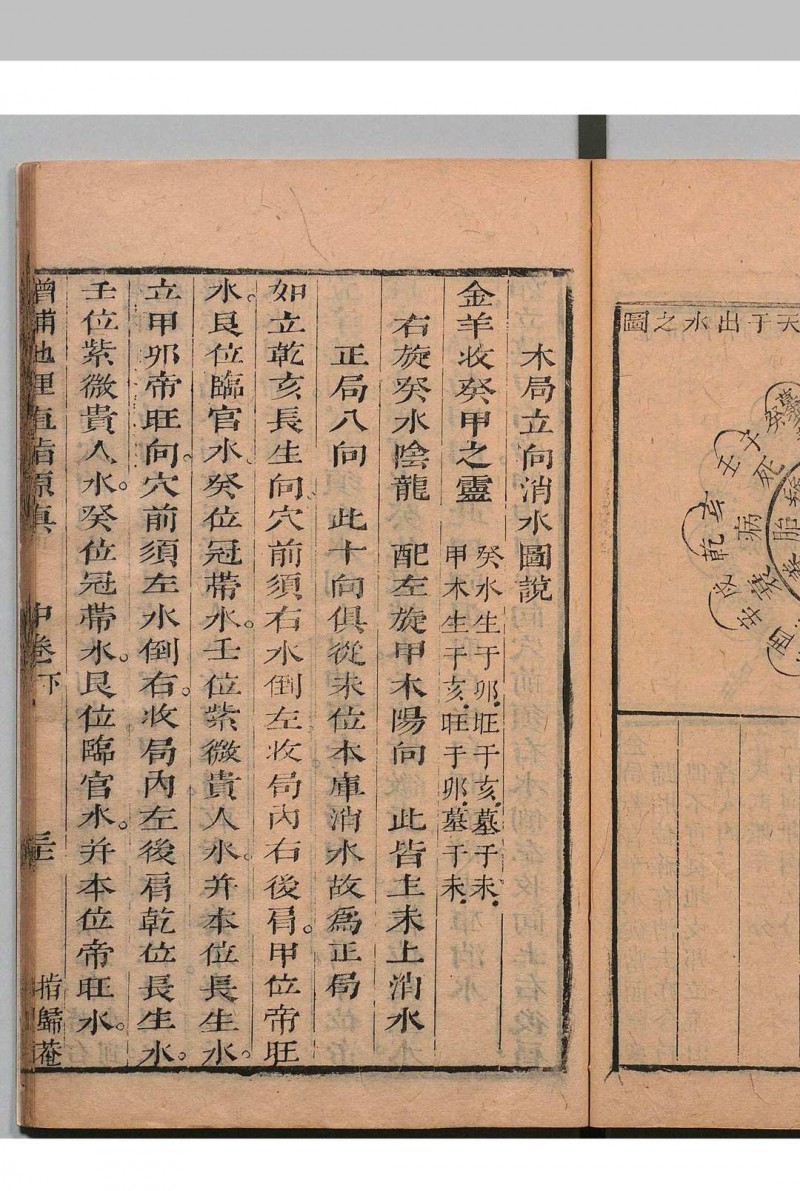 天干出水之圖
子
壬
死
亥
病
乾
戌
辛
胎
木局立向消水圖說
金羊收癸甲之靈 癸水生于卯.旺于亥.墓于未.
甲木生于亥.旺于卯.墓于未.
右旋癸水陰龍 配左旋甲木陽向 此皆主未上消水
正局八向 此十向俱從未位本庫消水故爲正局
如立乾亥長生向。穴前須右水倒左收局內右後肩。甲位帝旺
水。艮位臨官水。癸位冠帶水。壬位紫微貴人水。并本位長生水。
立甲卯帝旺向。穴前須左水倒右。收局內左後肩乾位長生水。
壬位紫微貴人水。癸位冠帶水。艮位臨官水。并本位帝旺水。
增補地理直指原真 中卷下 三 指歸菴